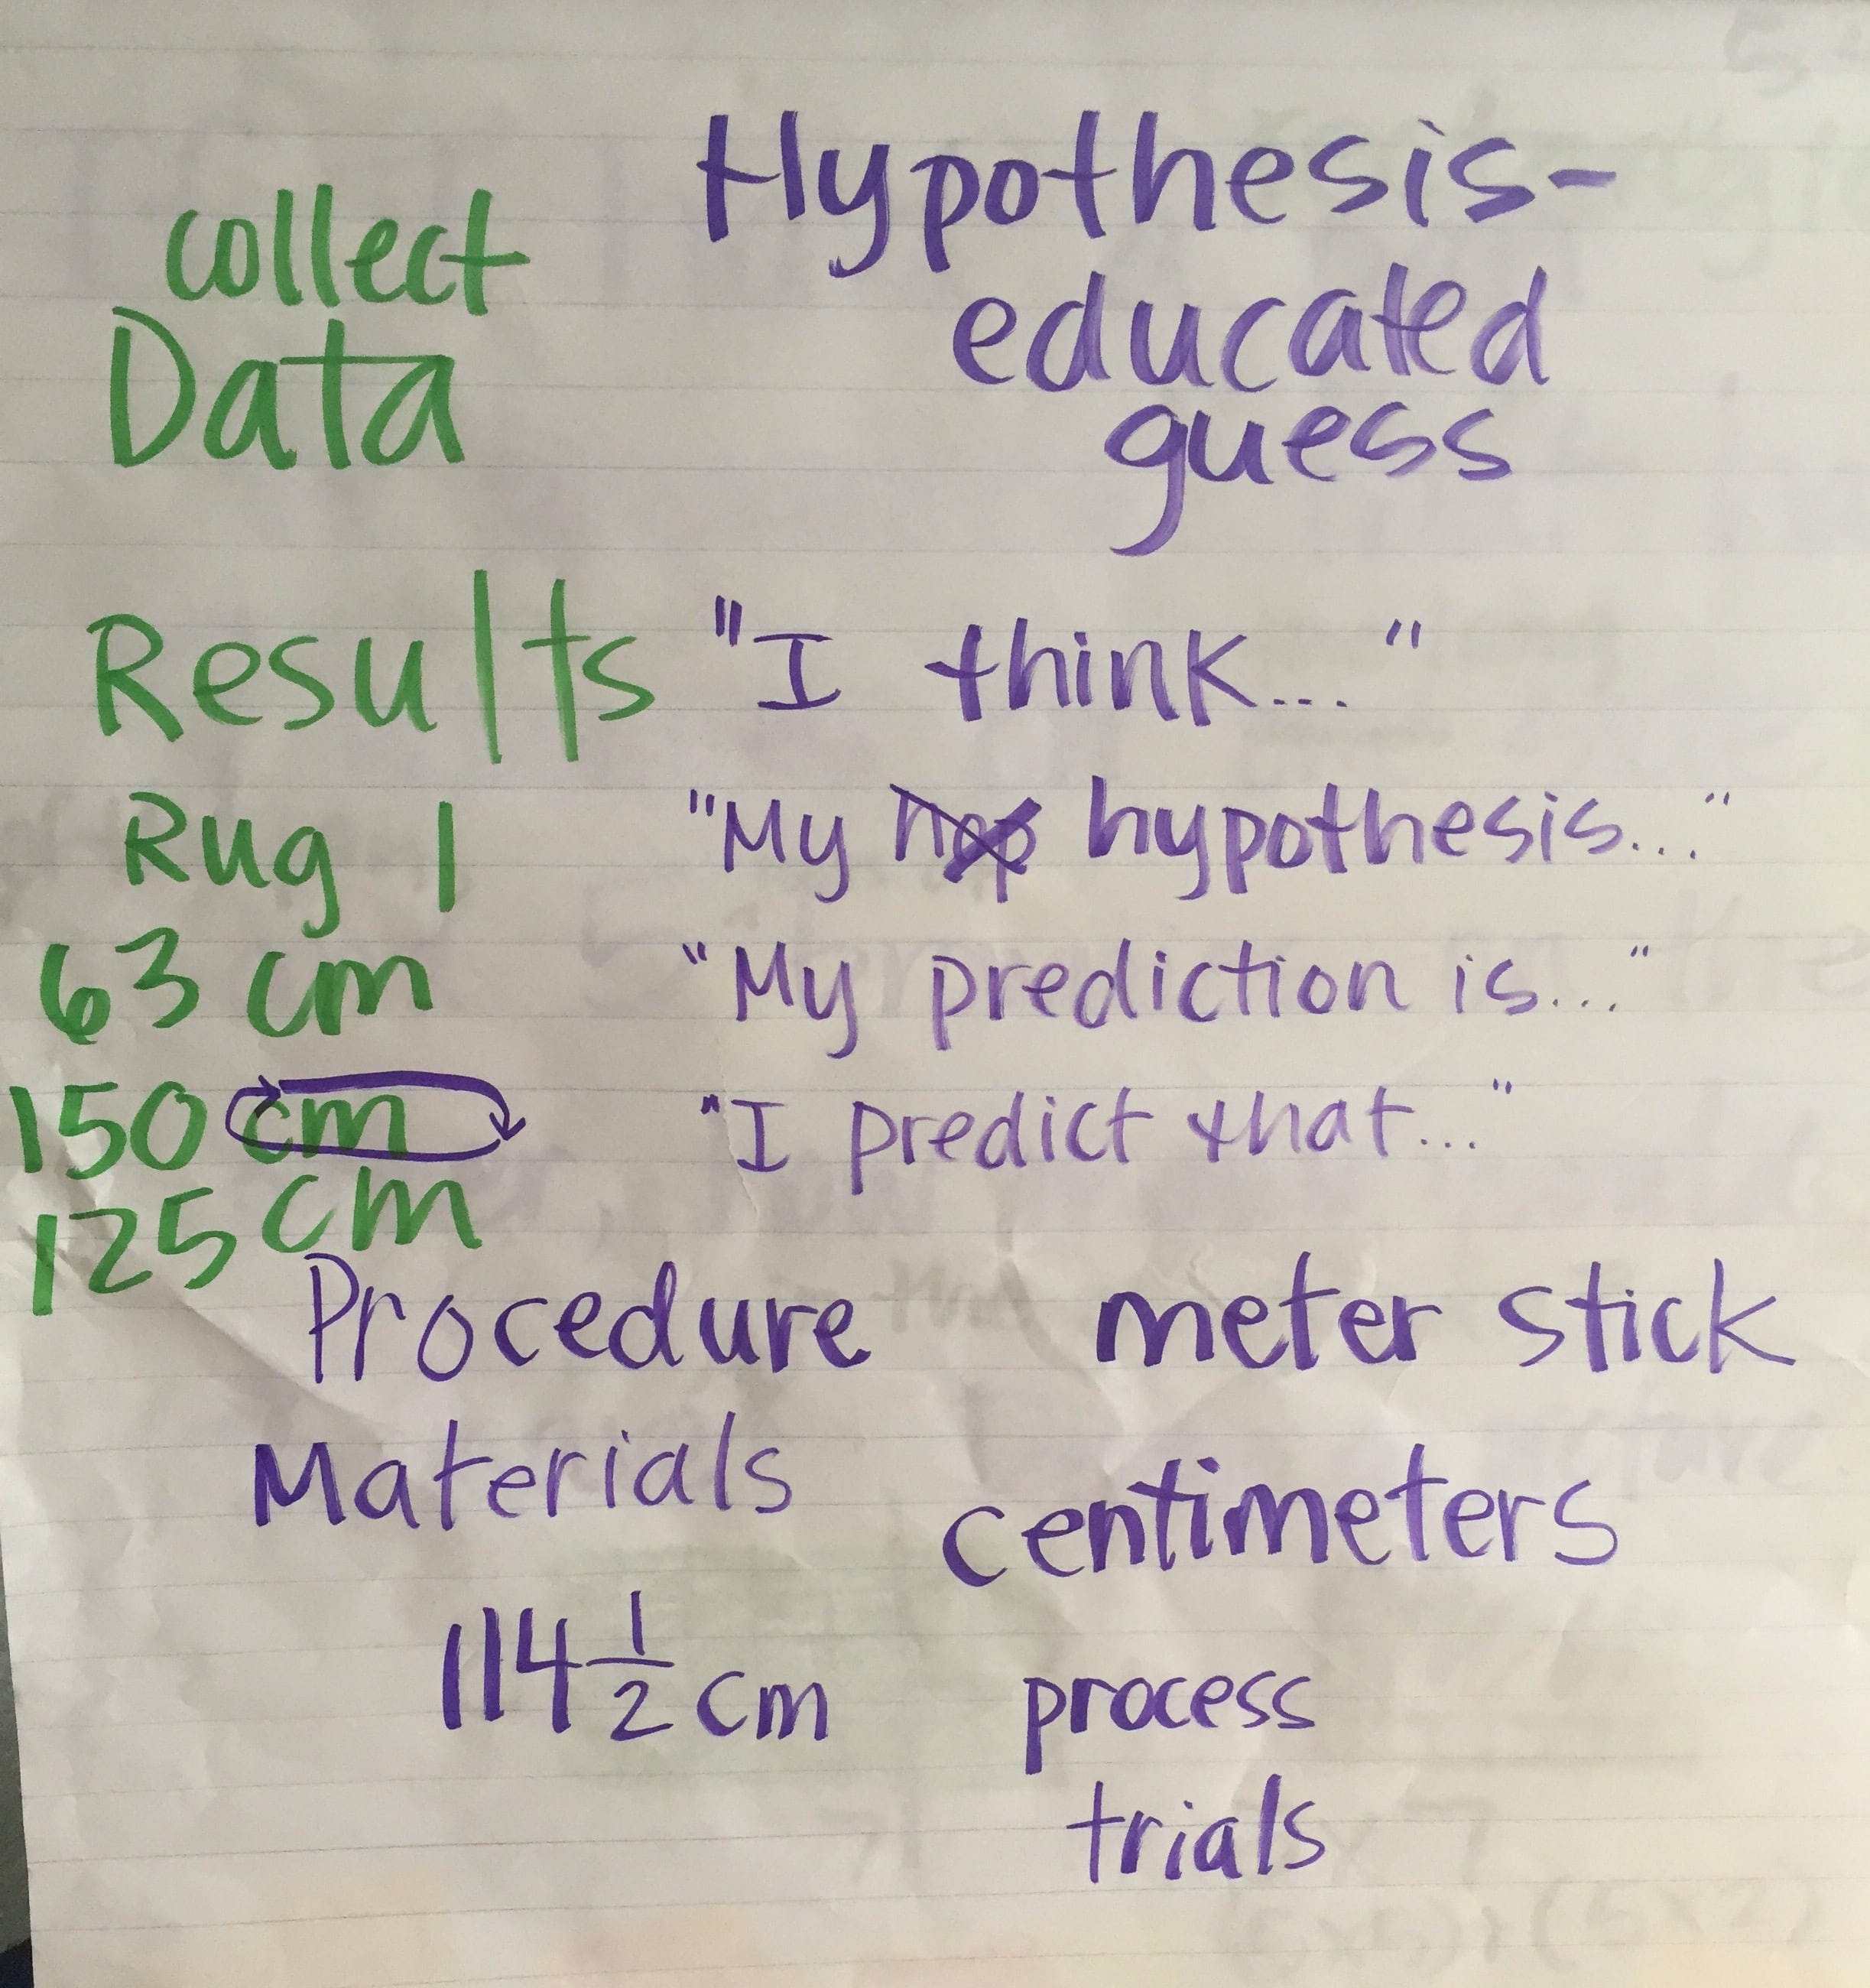 collect
Data
Results
Rug 1
63 cm
150 cm
125 cm
Hypothesis-
educated
guess
"I think..."
"My hypothesis..."
"My prediction is..."
"I predict that..."
Procedure
Materials
114 1/2 cm
meter stick
centimeters
process
trials